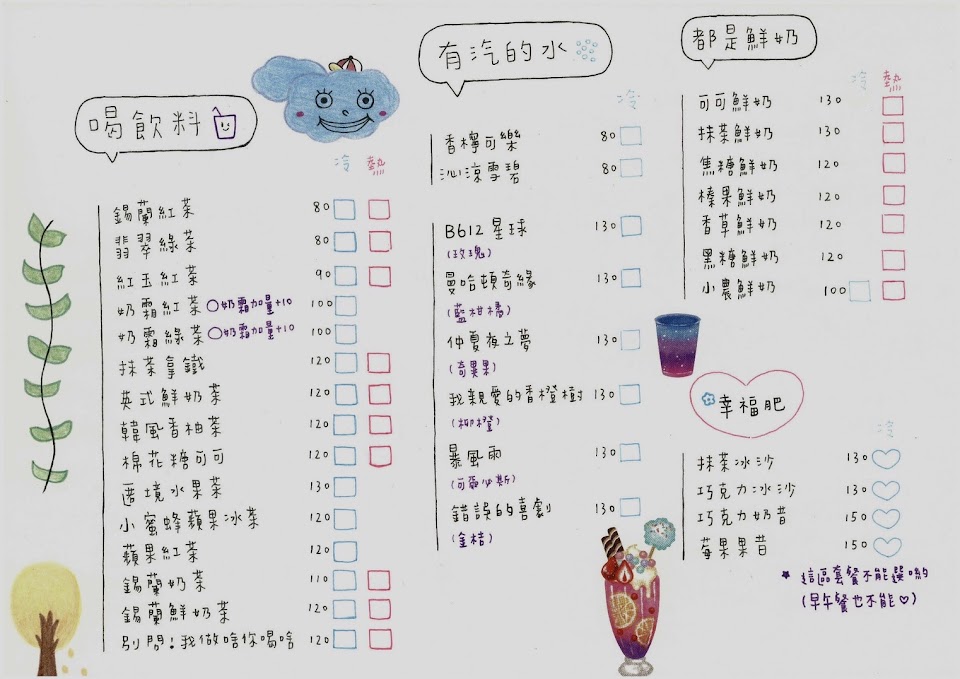 喝飲料
冷 熱
錫蘭紅茶 80
翡翠綠茶 80
紅玉紅茶 90
奶霜紅茶 ○奶霜加量+10 100
奶霜綠茶 ○奶霜加量+10 100
抹茶拿鐵 120
英式鮮奶茶 120
韓風香柚茶 120
棉花糖可可 120
秘境水果茶 130
小蜜蜂蘋果冰茶 120
蘋果紅茶 120
錫蘭奶茶 110
錫蘭鮮奶茶 120
別問!我做啥你喝啥 120
有汽的水
冷
香檸可樂 80
沁涼雪碧 80
B612星球 130
(玫瑰)
曼哈頓奇緣 130
(藍柑橘)
仲夏夜之夢 130
(奇異果)
我親愛的香橙樹 130
(柳橙)
暴風雨 130
(可爾必斯)
錯誤的喜劇 130
(金桔)
都是鮮奶
冷 熱
可可鮮奶 130
抹茶鮮奶 130
焦糖鮮奶 120
榛果鮮奶 120
香草鮮奶 120
黑糖鮮奶 120
小農鮮奶 100
幸福肥
冷
抹茶冰沙 130
巧克力冰沙 130
巧克力奶昔 150
莓果果昔 150
★ 這區套餐不能選喲
(早午餐也不能♡)